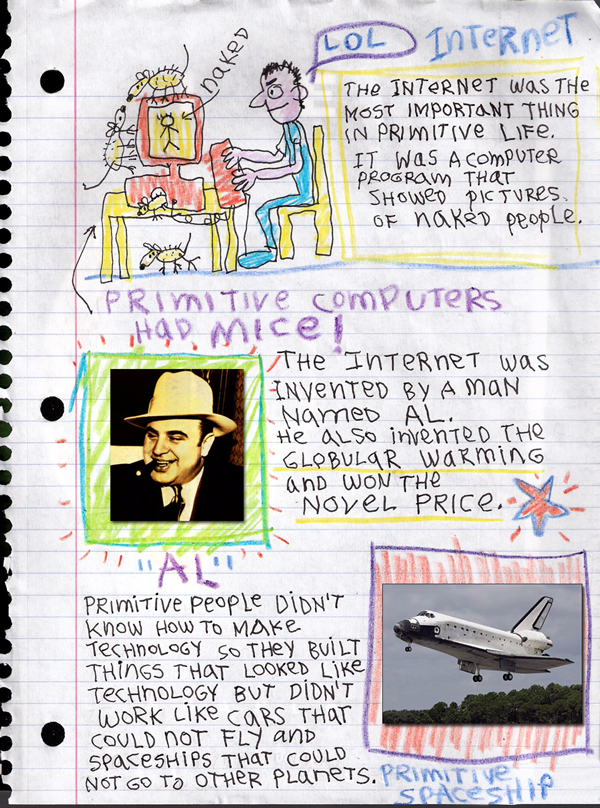 LOL
INTERNET
NAKED
THE INTERNET WAS THE
MOST IMPORTANT THING
IN PRIMITIVE LIFE.
IT WAS A COMPUTER
PROGRAM THAT
SHOWED PICTURES.
OF NAKED PEOPLE.
PRIMITIVE COMPUTERS
HAD MICE!
THE INTERNET WAS
INVENTED BY A MAN
NAMED AL.
HE ALSO INVENTED THE
GLOBULAR WARMING
AND WON THE
NOVEL PRICE.
"AL"
PRIMITIVE PEOPLE DIDN'T
KNOW HOW TO MAKE
TECHNOLOGY SO THEY BUILT
THINGS THAT LOOKED LIKE
TECHNOLOGY BUT DIDN'T
WORK LIKE CARS THAT
COULD NOT FLY AND
SPACESHIPS THAT COULD
NOT GO TO OTHER PLANETS.
PRIMITIVE
SPACESHIP